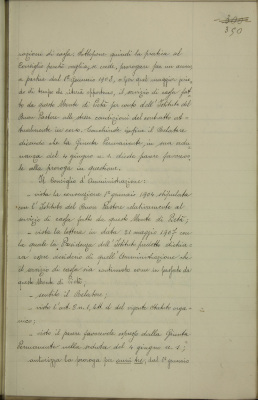 350
razione di cassa. Sottopone quindi la pratica al
Consiglio perchè voglia, o meno, prorogare per un anno,
a partire dal 1º Gennaio 1908, o per quel maggior perio-
do di tempo che riterrà opportuno, il servizio di cassa fat-
to da questo Monte di Pietà per conto dell'Istituto del
Buon Pastore alle stesse condizioni del contratto at-
tualmente in corso. Conchiude infine il Relatore
dicendo che la Giunta Permanente, in sua adu-
nanza del 4 giugno u. s. diede parere favorevo-
le alla proroga in questione.
Il Consiglio d'Amministrazione:
- vista la convenzione 1º gennaio 1904 stipulata
con l'Istituto del Buon Pastore relativamente al
servizio di cassa fatto da questo Monte di Pietà;
- vista la lettera in data 21 maggio 1907 con
la quale la Presidenza dell'Istituto predetto dichia-
ra esser desiderio di quell'Amministrazione che
il servizio di cassa sia continuato come in passato da
questo Monte di Pietà;
- sentito il Relatore;
- visto l'art. del vigente Statuto orga-
nico;
- visto il parere favorevole espresso dalla Giunta
Permanente nella seduta del 4 giugno u. s.;
autorizza la proroga per anni tre, dal 1º gennaio